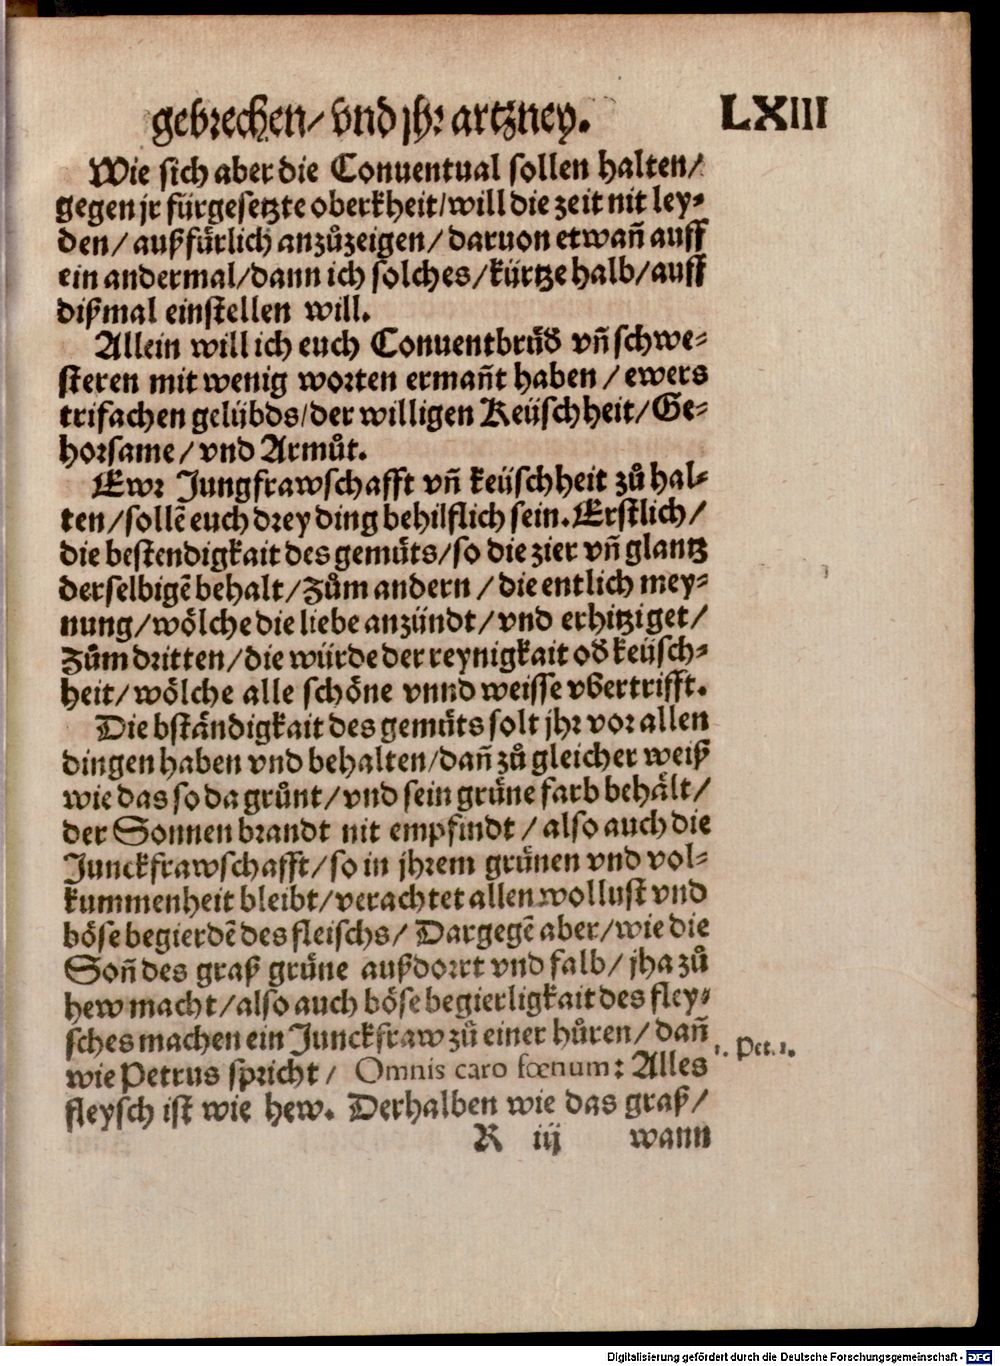 gebrechen/ vnd jhr artzney. LXIII
Wie sich aber die Conuentual sollen halten/
gegen jr fürgesetzte oberkheit/will die zeit nit ley-
den/ außfu̍rlich anzůzeigen/ daruon etwañ auff
ein andermal/dann ich solches/kürtze halb/auff
dißmal einstellen will.
Allein will ich euch Conuentbru̍d̕ vñ schwe-
steren mit wenig worten ermañt haben / ewers
trifachen gelübds/der willigen Keüschheit/ Ge-
horsame/ vnd Armůt.
Ewr Jungfrawschafft vñ keüschheit zů hal-
ten/sollẽ euch drey ding behilflich sein. Erstlich/
die bestendigkait des gemu̍ts/so die zier vñ glantz
derselbigẽ behalt/Zům andern / die entlich mey-
nung/wölche die liebe anzündt/vnd erhitziget/
Zům dritten/die würde der reynigkait od̕ keüsch-
heit/wölche alle schöne vnnd weisse vbertrifft.
Die bständigkait des gemu̍ts solt jhr vor allen
dingen haben vnd behalten/dañ zů gleicher weiß
wie das so da gru̍nt/vnd sein gru̍ne farb behält/
der Sonnen brandt nit empfindt / also auch die
Junckfrawschafft/so in jhrem gru̍nen vnd vol-
kummenheit bleibt/verachtet allen wollust vnd
böse begierdẽ des fleischs/ Dargegẽ aber/wie die
Soñ des graß gru̍ne außdorrt vnd falb/ jha zů
hew macht/also auch böse begierligkait des fley-
sches machen ein Junckfraw zů einer hůren/ dañ
1. Pet. 1.
wie Petrus spricht/ Omnis caro fœnum: Alles
fleysch ist wie hew. Derhalben wie das graß/
R iij wann
Digitalisierung gefördert durch die Deutsche Forschungsgemeinschaft - DFG